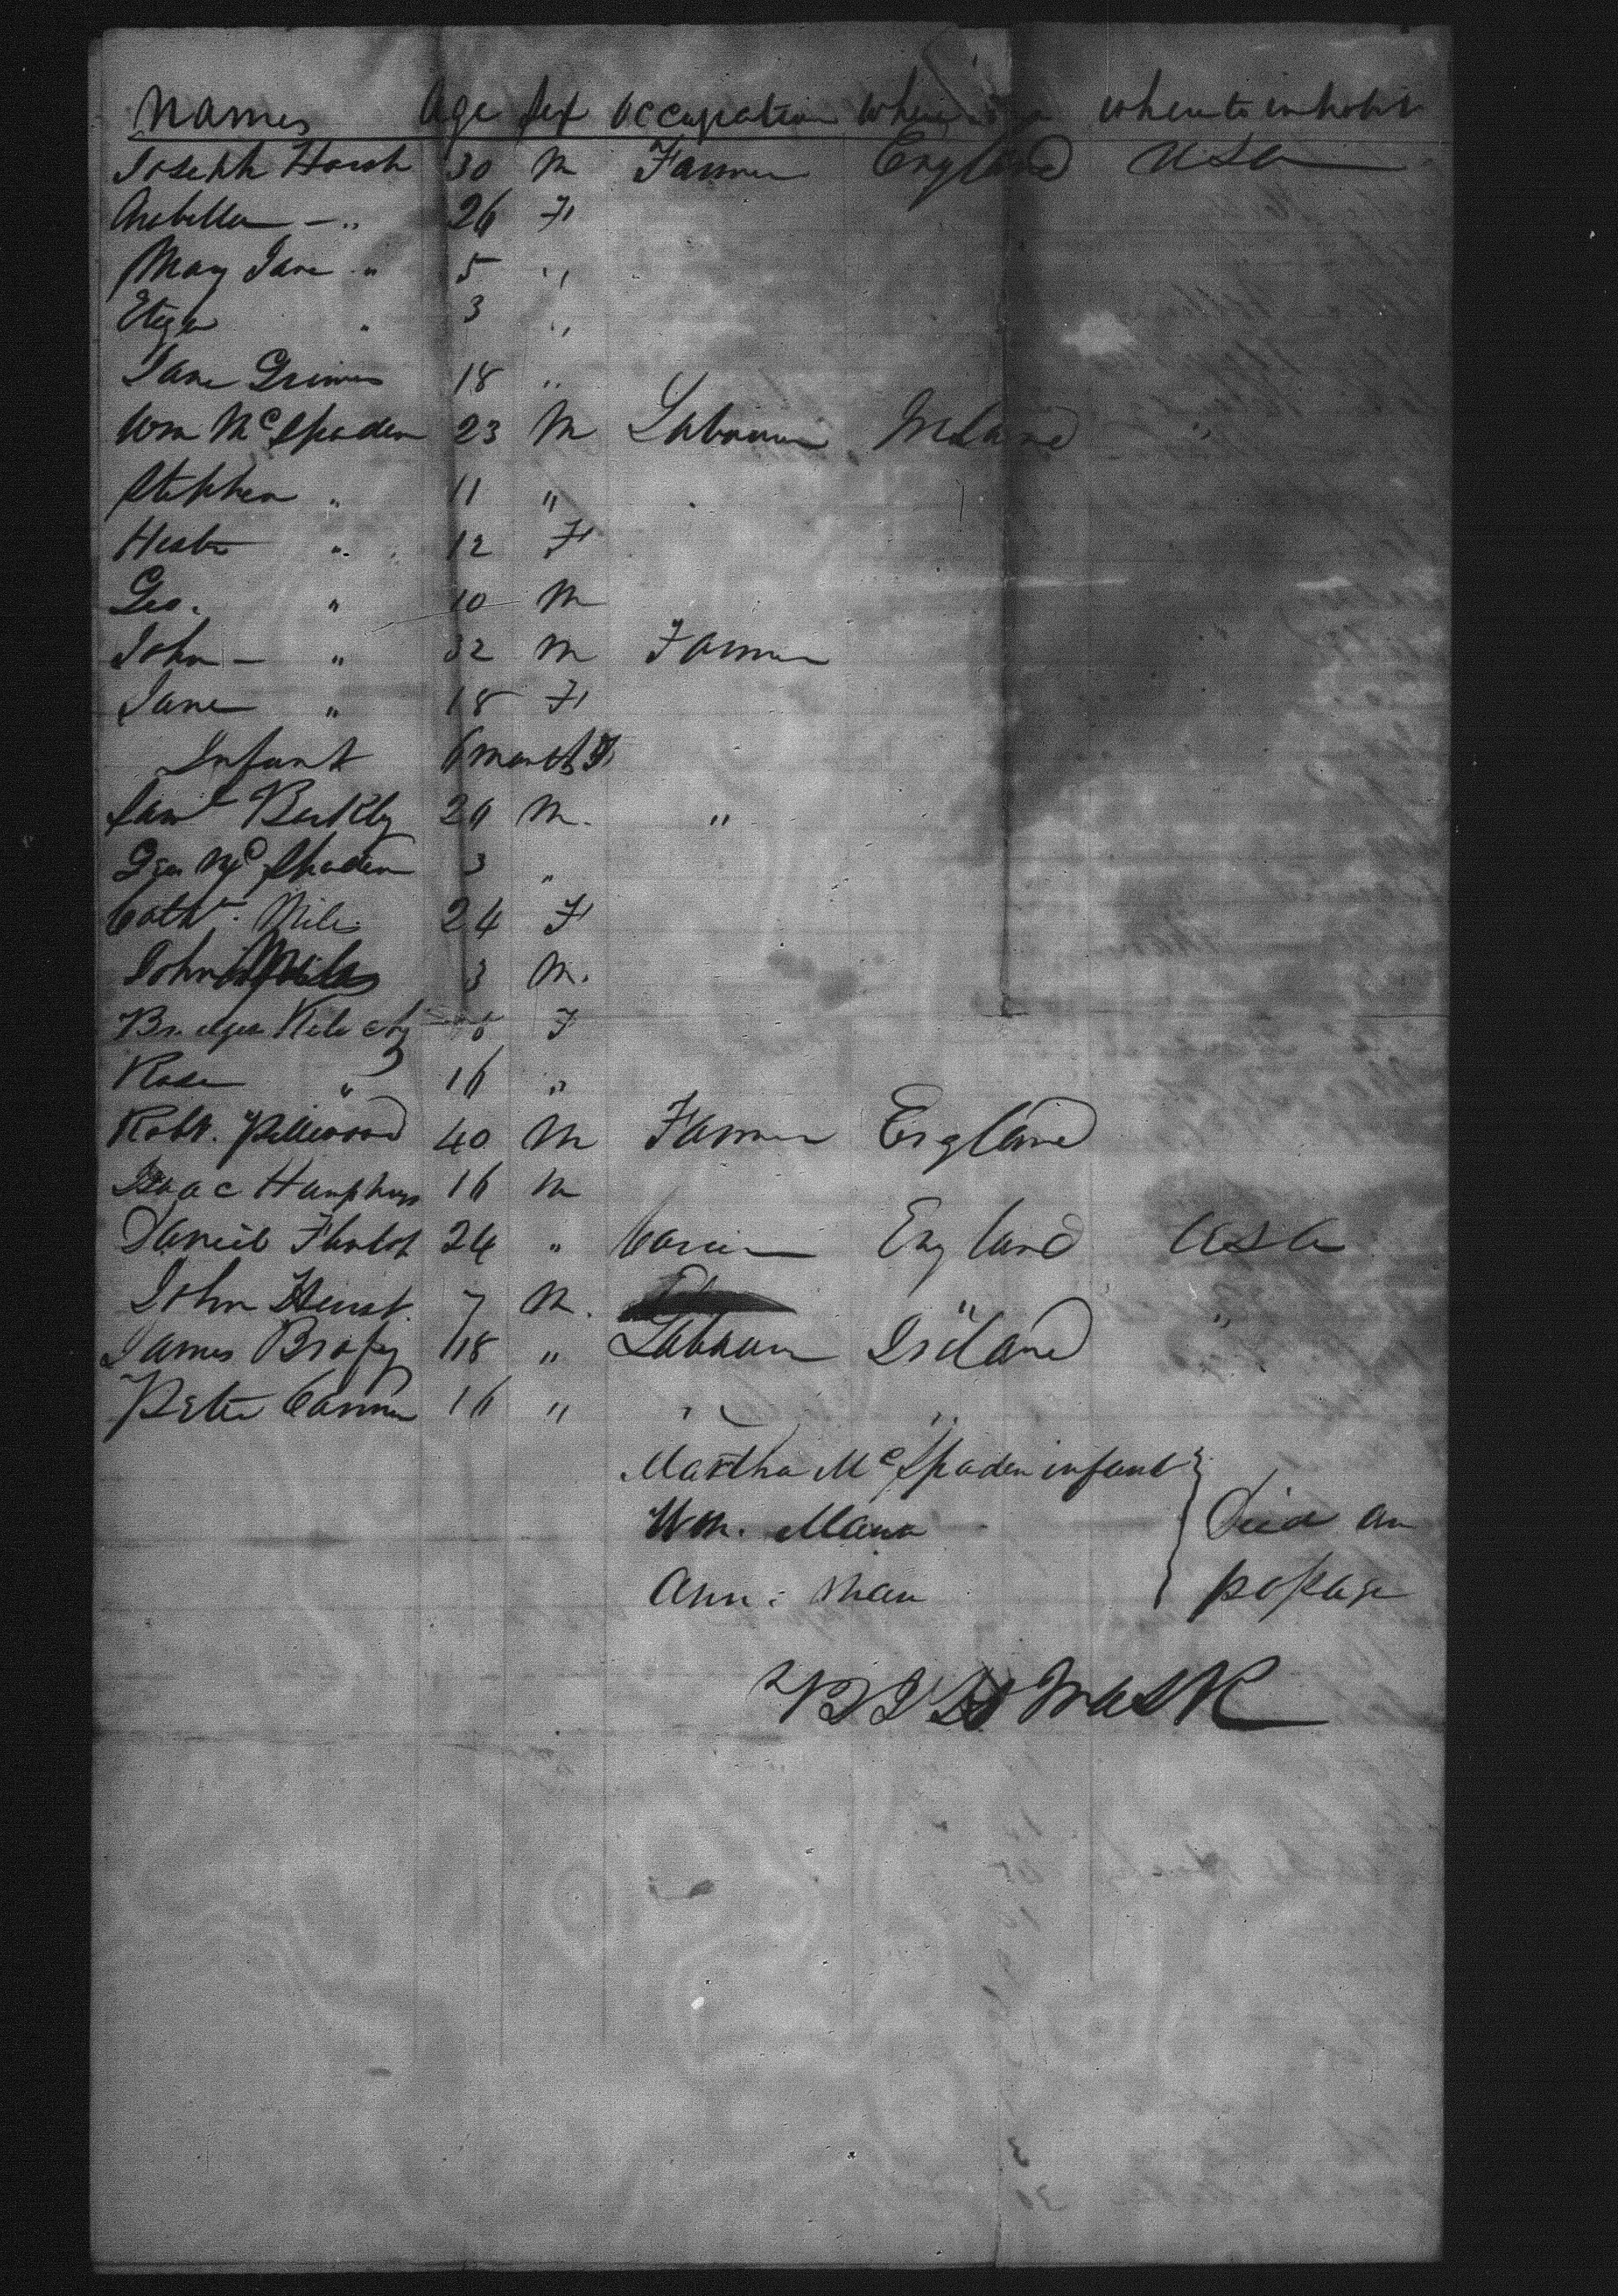 Names Age Sex Occupation where to inhabit
Joseph 30 M Farmer England USA
Arabella — " 26 F
Mary Jane " 5 "
Eliza " 3 "
Jane Grimes 18 "
Wm McSpaden 23 M Labourer Ireland "
Stephen " 11 "
Hester " 12 F
Geo. " 10 M
John — " 32 M Farmer
Jane " 18 F
Infant 6 months F
Saml Berkly M. "
Geo McSpaden 3 "
Cathr. 24 F
John 3 M.
F
Rose " 16 "
Robt. 40 M Farmer England
Isaac Humphrys 16 M
Daniel 24 " England USA
John 7 M. "
James Brofy 18 " Labourer Ireland "
Peter 16 " " "
Martha McSpaden infant
Wm. Mann Died on
Ann: Man passage